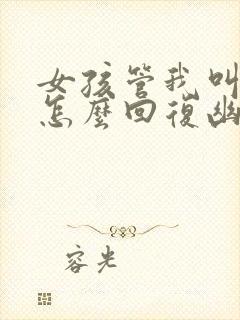 女孩管我叫
怎麼回復幽
容光